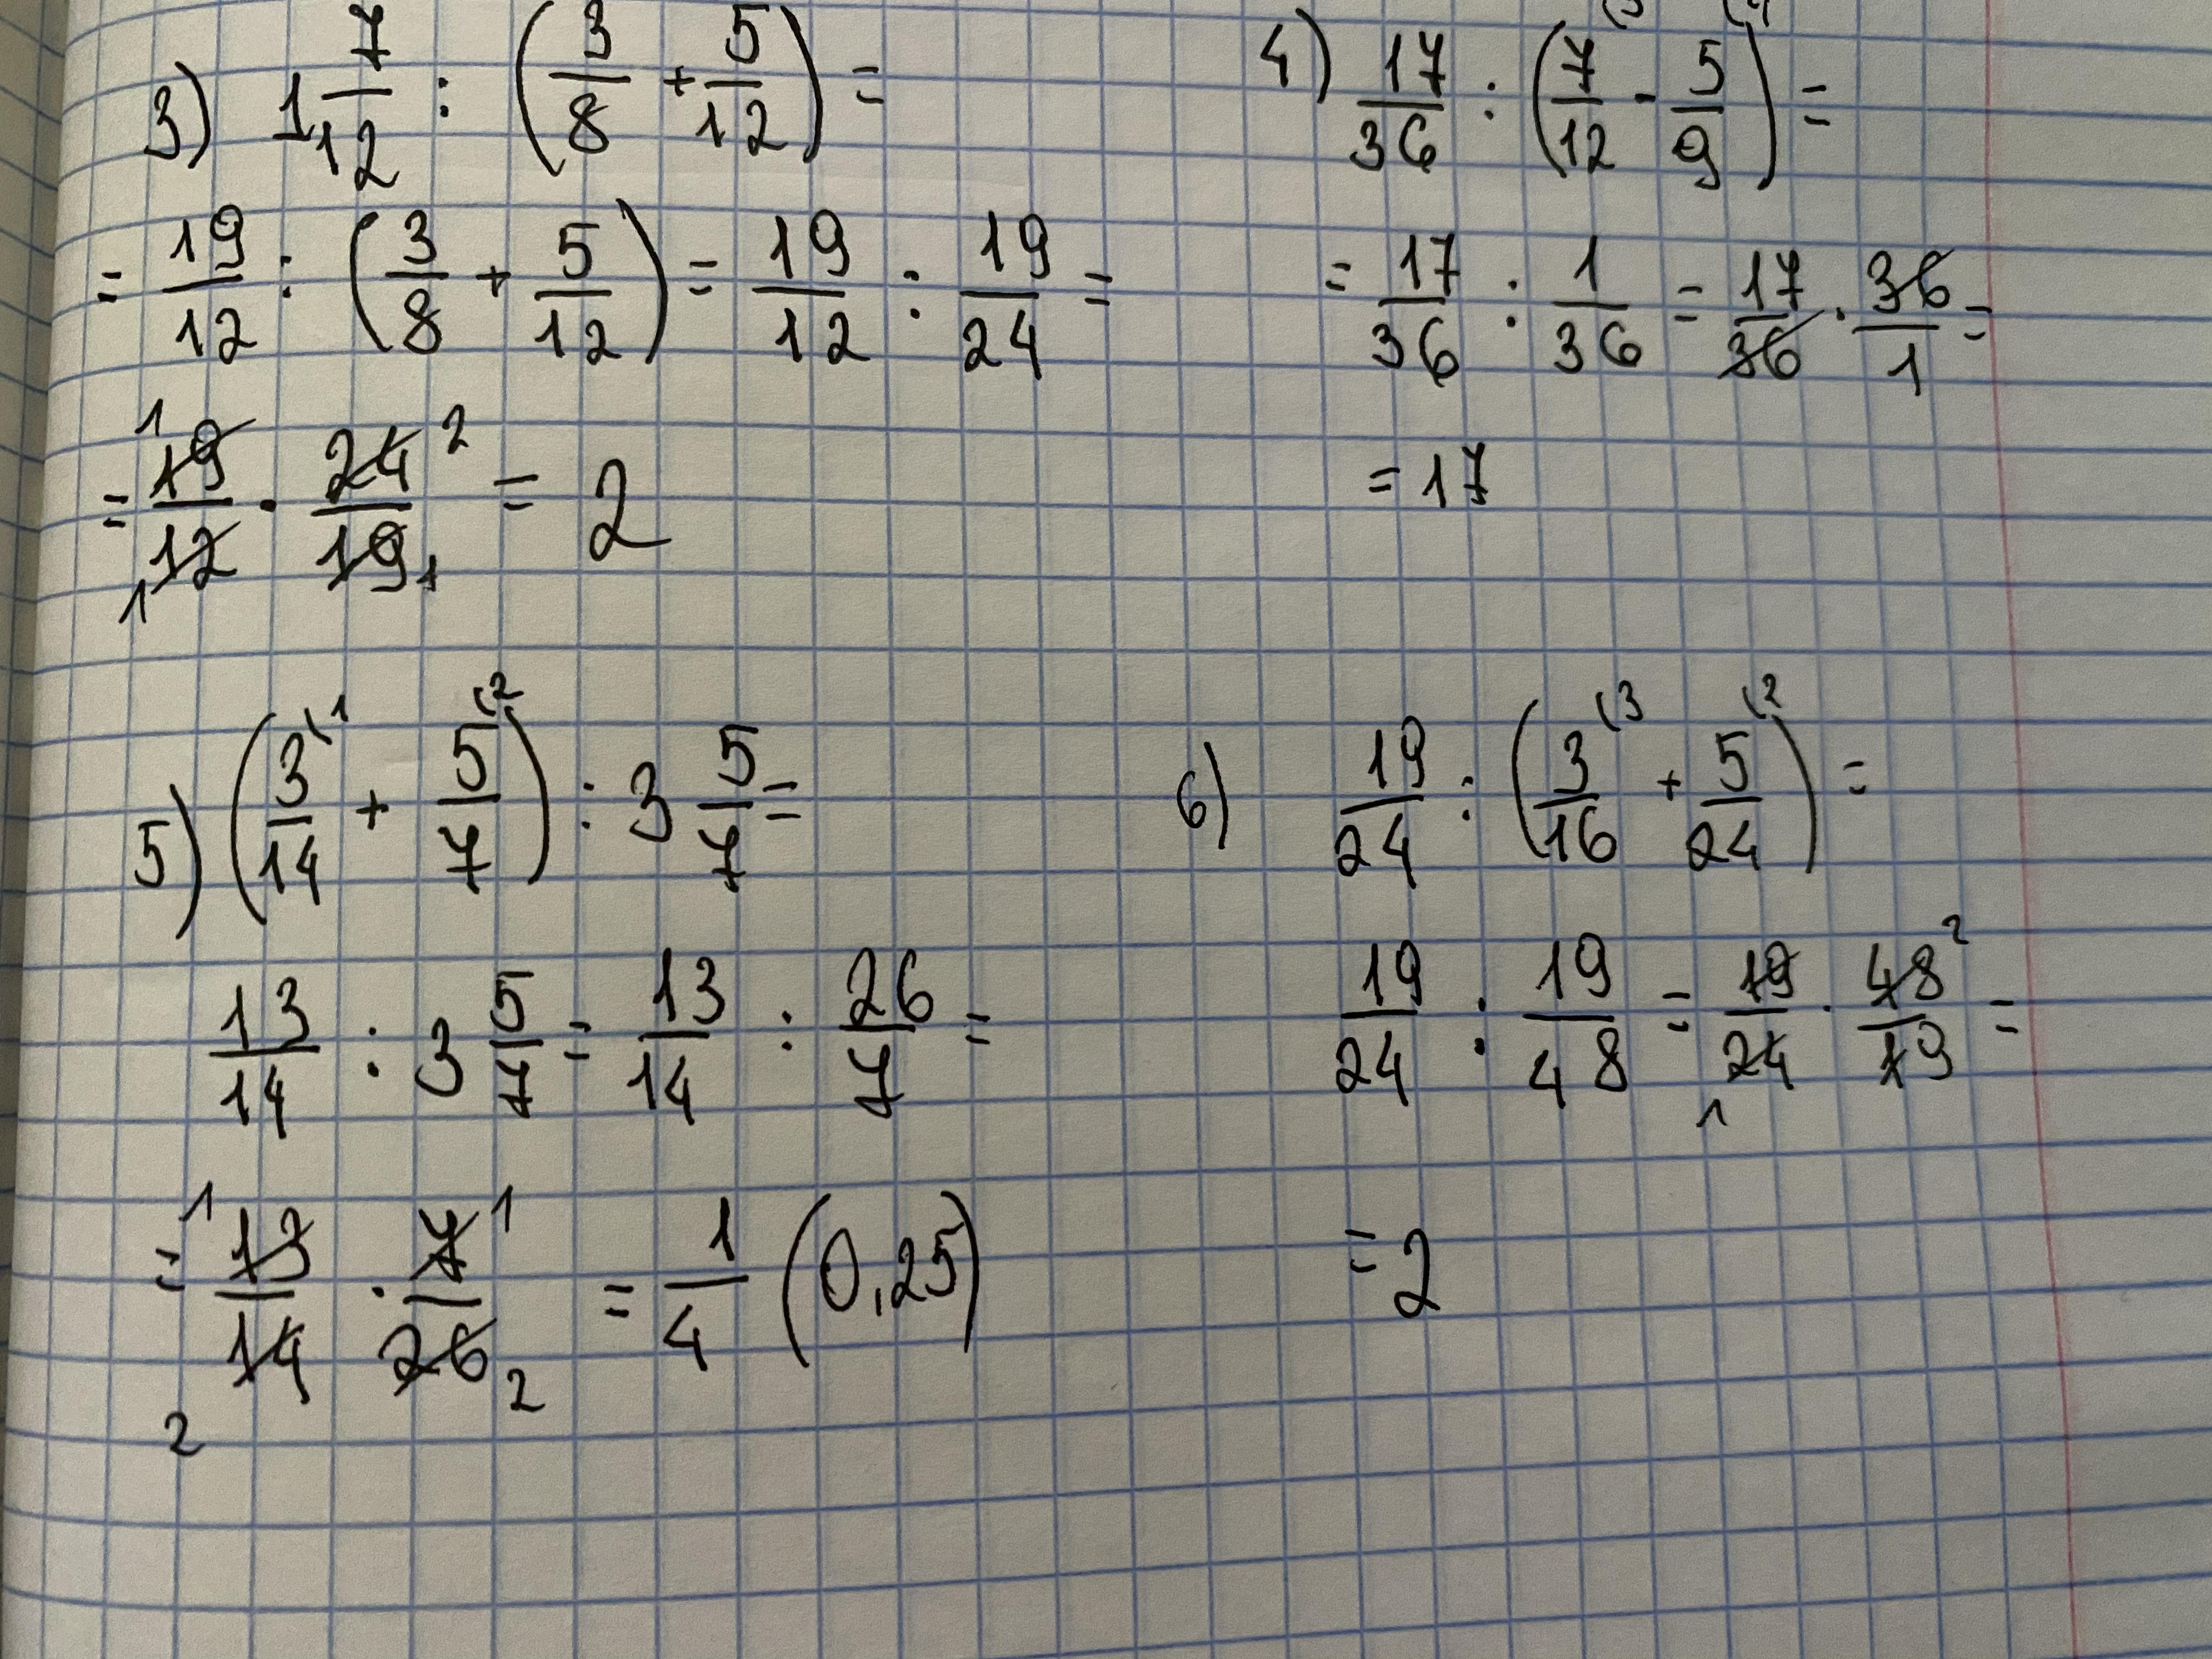 3) 1 7/12 : (3/8 + 5/12) =
= 19/12 : (3/8 + 5/12) = 19/12 : 19/24 =
= 19/12 · 24/19 = 2
1 2
1 1
4) 17/36 : (7/12 - 5/9) =
= 17/36 : 1/36 = 17/36 · 36/1 =
= 17
5) (3/14 (1 + 5/7 (2) : 3 5/7 =
13/14 : 3 5/7 = 13/14 : 26/7 =
= 13/14 · 7/26 = 1/4 (0,25)
1 1
2 2
6) 19/24 : (3/16 (3 + 5/24 (2) =
19/24 : 19/48 = 19/24 · 48/19 =
2
1
= 2